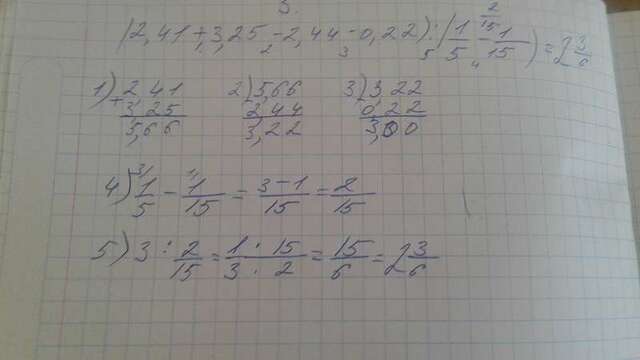 3.
(2,41+3,25-2,44-0,22):(1/5-1/15)=2 3/6
1 2 3 5 4 2/15
1) 2,41 + 3,25 = 5,66 2) 5,66 - 2,44 = 3,22 3) 3,22 - 0,22 = 3,00
4) 1/5 - 1/15 = 3-1/15 = 2/15
5) 3 : 2/15 = 1 · 15/3 · 2 = 15/6 = 2 3/6